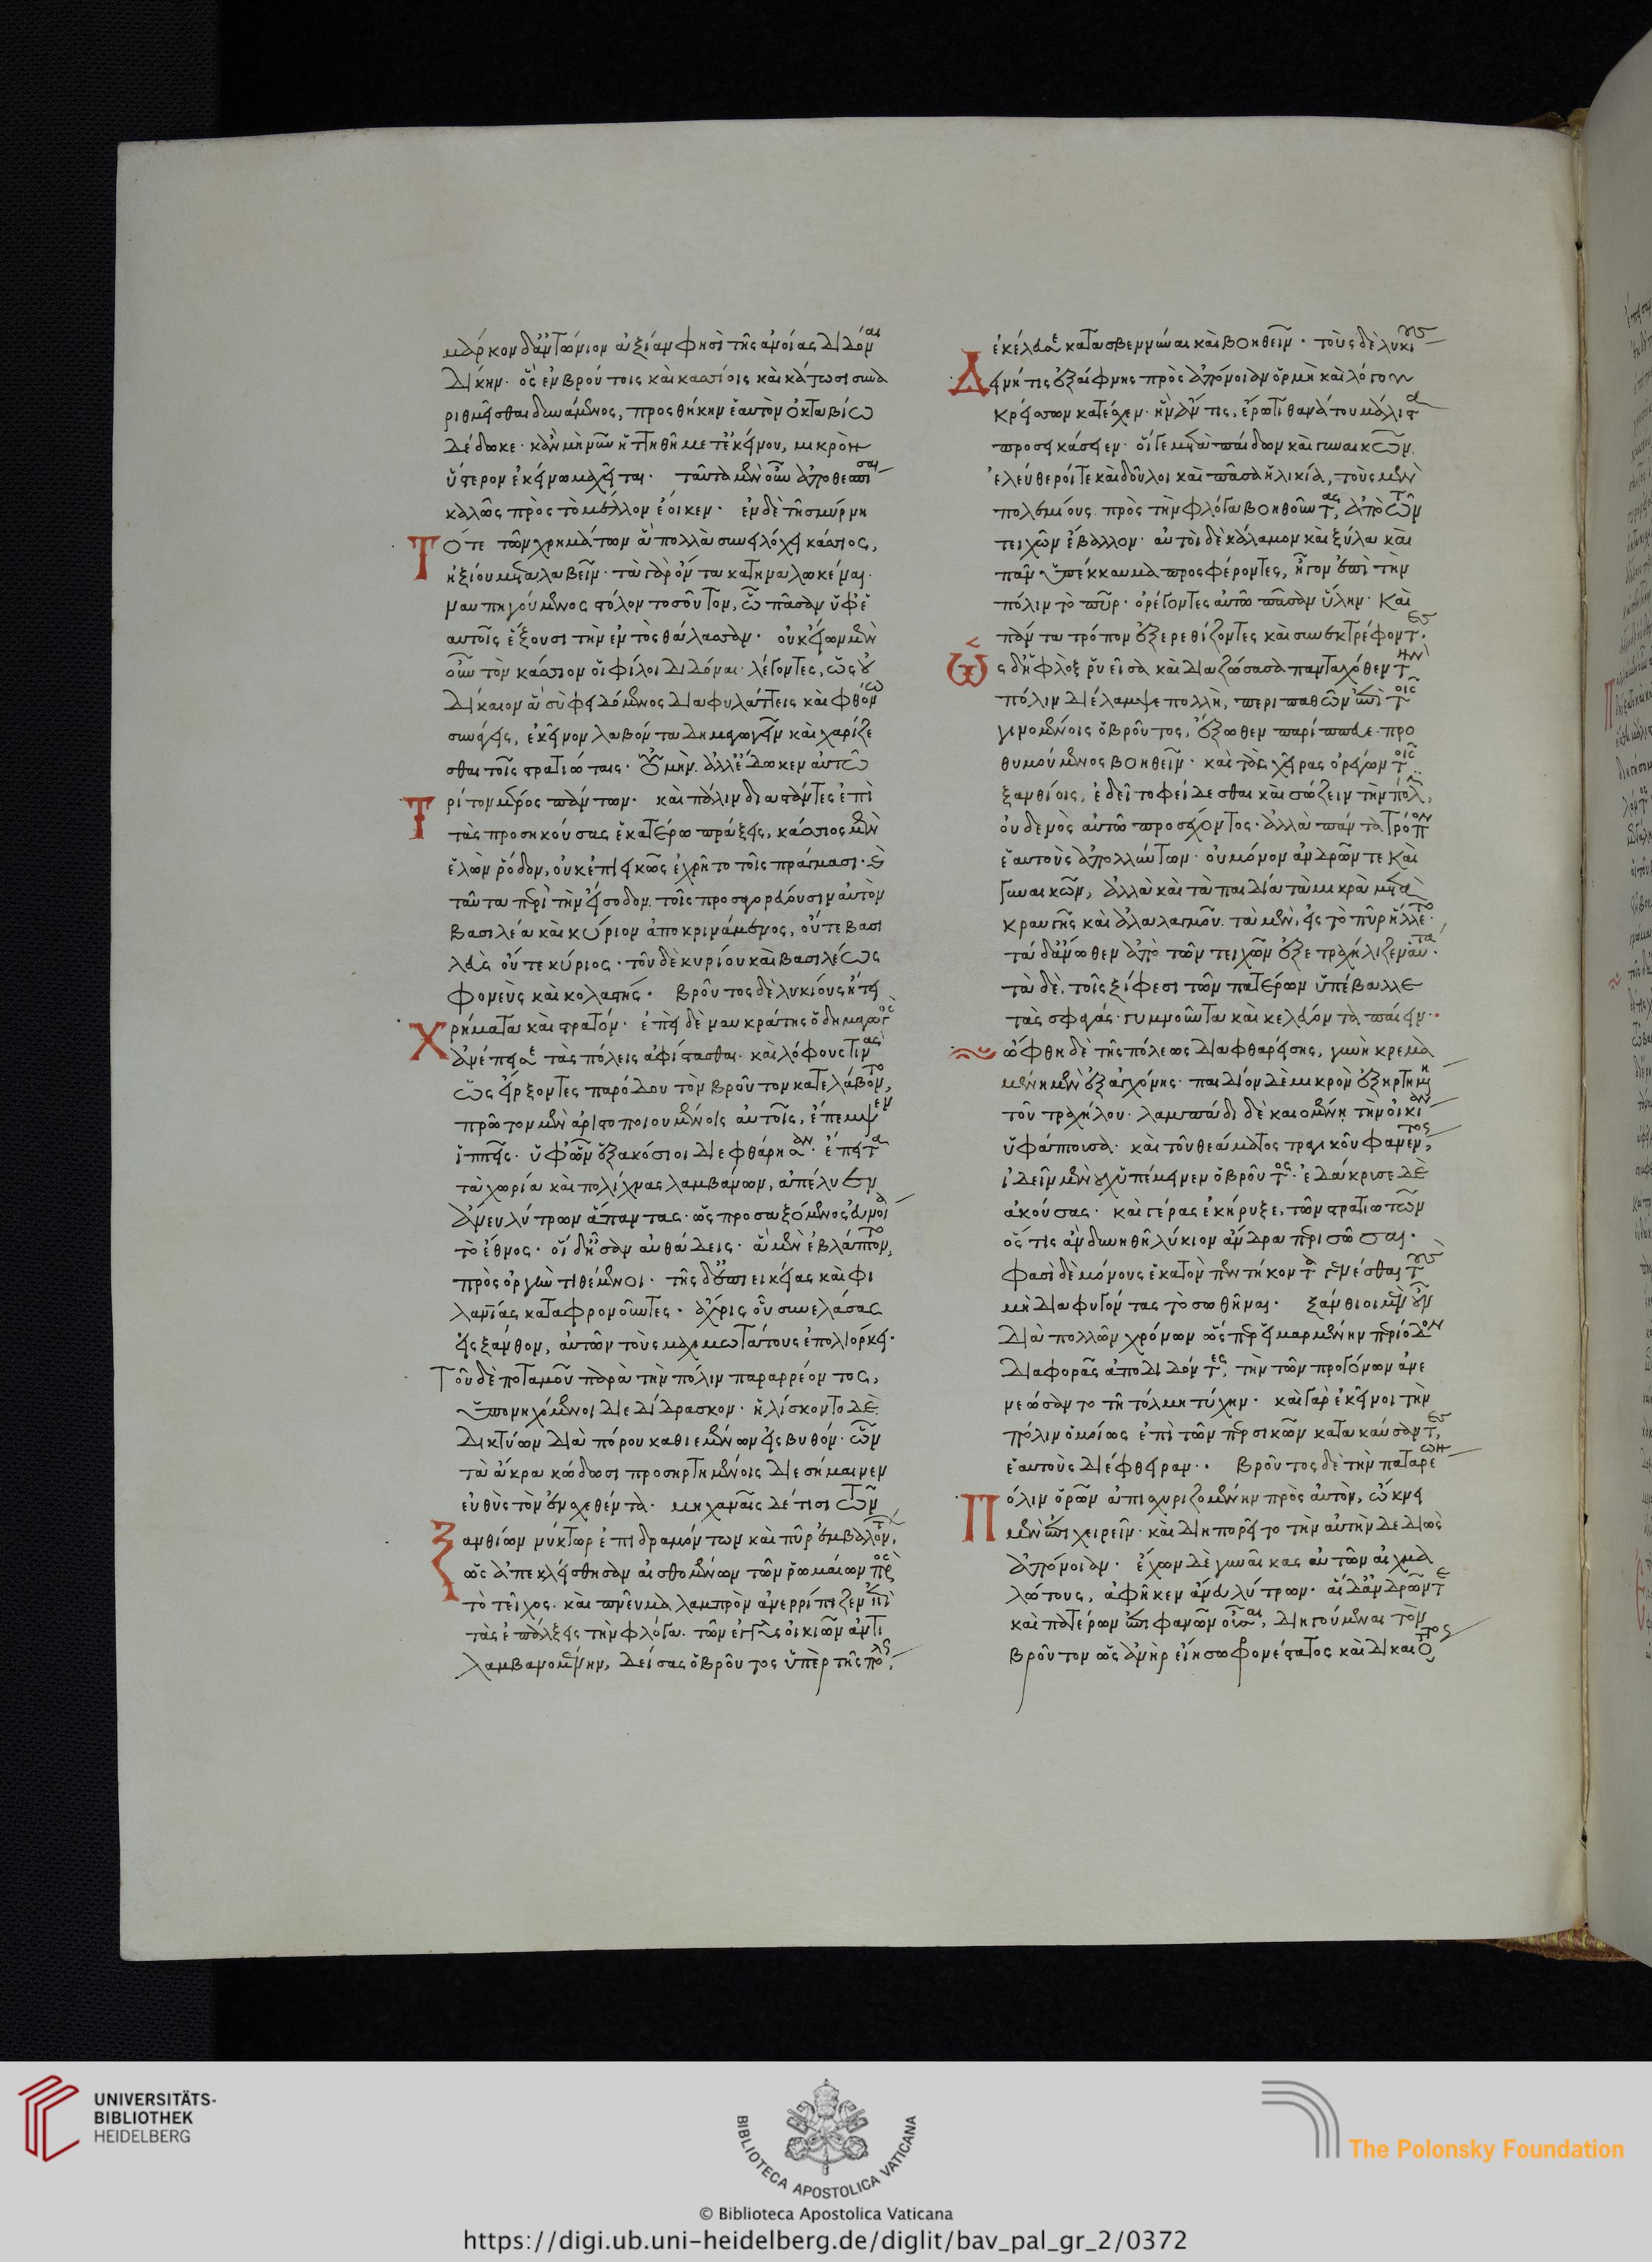 μάρκον δ' ἀντώνιον ἀξίαν φησὶ τῆς ἀνοίας διδόναι
δίκην· ὃς ἐν βρούτοις καὶ κασσίοις καὶ κάτωσι συνα
ριθμεῖσθαι δυνάμενος, προσθήκην ἑαυτὸν ὀκταβίω
δέδωκε· κἂν μὴ νῦν ἡττηθῆ μετ' ἐκείνου, μικρὸν
ὕστερον ἐκείνω μαχεῖται· ταῦτα μὲν οὖν ἀποθεσπίσαι
καλῶς πρὸς τὸ μέλλον ἔοικεν· ἐν δὲ τῆ σμύρνη
Τότε τῶν χρημάτων ἃ πολλὰ συνειλόχει κάσσιος,
ἠξίου μεταλαβεῖν· τὰ γὰρ ὄντα κατηναλωκέναι·
ναυπηγούμενος στόλον τοσοῦτον, ὧ πᾶσαν ὑφ' ἑ
αυτοῖς ἕξουσι τὴν ἐντὸς θάλασσαν· οὐκ εἴων μὲν
οὖν τὸν κάσσιον οἱ φίλοι διδόναι λέγοντες, ὡς οὐ
δίκαιον ἃ σὺ φειδόμενος διαφυλάττεις καὶ φθόνω
συνάγεις, ἐκεῖνον λαβόντα δημαγωγεῖν καὶ χαρίζε
σθαι τοῖς στρατιώταις· οὐ μὴν ἀλλ' ἔδωκεν αὐτῶ
Τρίτον μέρος πάντων· καὶ πάλιν διαστάντες ἐπὶ
τὰς προσηκούσας ἑκατέρω πράξεις, κάσσιος μὲν
ἑλὼν ῥόδον, οὐκ ἐπιεικῶς ἐχρῆτο τοῖς πράγμασι· καὶ
ταῦτα περὶ τὴν εἴσοδον τοῖς προσαγορεύουσιν αὐτὸν
βασιλέα καὶ κύριον ἀποκρινάμενος, οὔτε βασι
λεὺς οὔτε κύριος· τοῦ δὲ κυρίου καὶ βασιλέως
φονεὺς καὶ κολαστής· βροῦτος δὲ λυκίους ἤτει
Χρήματα καὶ στρατόν· ἐπεὶ δὲ ναυκράτης ὁ δημαγωγὸς
ἀνέπεισε τὰς πόλεις ἀφίστασθαι· καὶ λόφους τινὰς
ὡς εἴρξοντες παρόδου τὸν βροῦτον κατελάβοντο,
πρῶτον μὲν ἀριστοποιουμένοις αὐτοῖς, ἔπεμψεν
ἱππεῖς· ὑφ' ὧν ἑξακόσιοι διεφθάρησαν· ἔπειτα
τὰ χωρία καὶ πολίχνας λαμβάνων, ἀπέλυσεν
ἄνευ λύτρων ἅπαντας· ὡς προσαξόμενος εὐνοία
τὸ ἔθνος· οἱ δ' ἦσαν αὐθάδεις· ἃ μὲν ἐβλάπτοντο,
πρὸς ὀργὴν τιθέμενοι· τῆς δ' ἐπιεικείας καὶ φι
λανίας καταφρονοῦντες· ἄχρις οὗ συνελάσας
εἰς ξάνθον, αὐτῶν τοὺς μαχιμωτάτους ἐπολιόρκει·
Τοῦ δὲ ποταμοῦ παρὰ τὴν πόλιν παραρρέοντος,
ὑπονηχόμενοι διεδίδρασκον· ἡλίσκοντο δὲ
δικτύων διὰ πόρου καθιεμένων εἰς βυθόν· ὧν
τὰ ἄκρα κώδωσι προσηρτημένοις διεσήμαινεν
εὐθὺς τὸν ἐνσχεθέντα· μηχαναῖς δέ τισι τῶν
Ξανθίων νύκτωρ ἐπιδραμόντων καὶ πῦρ ἐμβαλόντων,
ὡς ἀπεκλείσθησαν αἰσθομένων τῶν ῥωμαίων πρὸς
τὸ τεῖχος· καὶ πνεῦμα λαμπρὸν ἀνερρίπιζεν ἐπὶ
τὰς ἐπάλξεις τὴν φλόγα· τῶν ἐγγὺς οἰκιῶν ἀντι
λαμβανομένην, δείσας ὁ βροῦτος ὑπὲρ τῆς πόλεως,
ἐκέλευσε κατασβεννύναι καὶ βοηθεῖν· τοὺς δὲ λυκίους
Δεινή τις ἐξαίφνης πρὸς ἀπόνοιαν ὁρμὴ καὶ λόγου
κρείσσων κατέσχεν· ἣν ἄν τις, ἔρωτι θανάτου μάλιστα
προσεικάσειεν· οἵ γε μετὰ παίδων καὶ γυναικῶν.
ἐλεύθεροί τε καὶ δοῦλοι καὶ πᾶσα ἡλικία, τοὺς μὲν
πολεμίους πρὸς τὴν φλόγα βοηθοῦντας, ἀπὸ τῶν
τειχῶν ἔβαλλον· αὐτοὶ δὲ κάλαμον καὶ ξύλα καὶ
πᾶν ὑπέκκαυμα προσφέροντες, ἦγον ἐπὶ τὴν
πόλιν τὸ πῦρ· ὀρέγοντες αὐτῶ πᾶσαν ὕλην· καὶ
πάντα τρόπον ἐξερεθίζοντες καὶ συνεκτρέφοντες·
Ὡς δ' ἡ φλὸξ ῥυεῖσα καὶ διαζώσασα πανταχόθεν τὴν
πόλιν διέλαμψε πολλὴ, περιπαθῶν ἐπὶ τοῖς
γινομένοις ὁ βροῦτος, ἔξωθεν παρίππευε προ
θυμούμενος βοηθεῖν· καὶ τὰς χεῖρας ὀρέγων τοῖς
ξανθίοις, ἐδεῖτο φείδεσθαι καὶ σώζειν τὴν πόλιν,
οὐδενὸς αὐτῶ προσέχοντος· ἀλλὰ πάντα τρόπον
ἑαυτοὺς ἀπολλύντων· οὐ μόνον ἀνδρῶν τε καὶ
γυναικῶν, ἀλλὰ καὶ τὰ παιδία τὰ μικρὰ μετὰ
κραυγῆς καὶ ἀλαλαγμοῦ· τὰ μὲν, εἰς τὸ πῦρ ἥλλετο·
τὰ δ' ἄνωθεν ἀπὸ τῶν τειχῶν ἐξετραχήλιζεν αὑτά·
τὰ δὲ, τοῖς ξίφεσι τῶν πατέρων ὑπέβαλλε
τὰς σφαγάς· γυμνοῦντα καὶ κελεύοντα παίειν·
ὤφθη δὲ τῆς πόλεως διαφθαρείσης, γυνὴ κρεμα
μένη μὲν ἐξ ἀγχόνης· παιδίον δὲ μικρὸν ἐξηρτημένη
τοῦ τραχήλου· λαμπάδι δὲ καιομένη τὴν οἰκίαν
ὑφάπτουσα· καὶ τοῦ θεάματος τραγικοῦ φανέντος,
ἰδεῖν μὲν οὐχ ὑπέμεινεν ὁ βροῦτος· ἐδάκρυσε δὲ
ἀκούσας· καὶ γέρας ἐκήρυξε, τῶν στρατιωτῶν
ὅστις ἂν δυνηθῆ λύκιον ἄνδρα περισῶσαι·
φασὶ δὲ μόνους ἑκατὸν πεντήκοντα γενέσθαι τοὺς
μὴ διαφυγόντας τὸ σωθῆναι· ξάνθιοι μὲν οὖν
διὰ πολλῶν χρόνων ὥσπερ εἱμαρμένην περίοδον
διαφορᾶς ἀποδιδόντες, τὴν τῶν προγόνων ἀνε
νεώσαντο τῆ τόλμη τύχην· καὶ γὰρ ἐκεῖνοι τὴν
πόλιν ὁμοίως ἐπὶ τῶν περσικῶν κατακαύσαντες,
ἑαυτοὺς διέφθειραν· βροῦτος δὲ τὴν παταρέων
Πόλιν ὁρῶν ἀπισχυριζομένην πρὸς αὐτὸν, ὤκνει
μὲν ἐπιχειρεῖν· καὶ διηπορεῖτο τὴν αὐτὴν δεδιὼς
ἀπόνοιαν· ἔχων δὲ γυναῖκας αὐτῶν αἰχμα
λώτους, ἀφῆκεν ἄνευ λύτρων· αἱ δ' ἀνδρῶν τε
καὶ πατέρων ἐπιφανῶν οὖσαι, διηγούμεναι τὸν
βροῦτον ὡς ἀνὴρ εἴη σωφρονέστατος καὶ δικαιότατος,
UNIVERSITÄTS-
BIBLIOTHEK
HEIDELBERG
BIBLIOTECA APOSTOLICA VATICANA
The Polonsky Foundation
© Biblioteca Apostolica Vaticana
https://digi.ub.uni-heidelberg.de/diglit/bav_pal_gr_2/0372